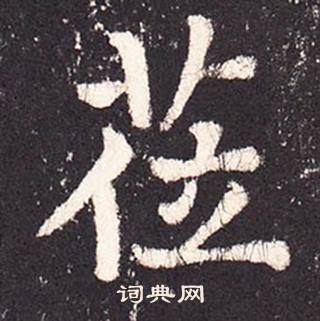 莅
词典网